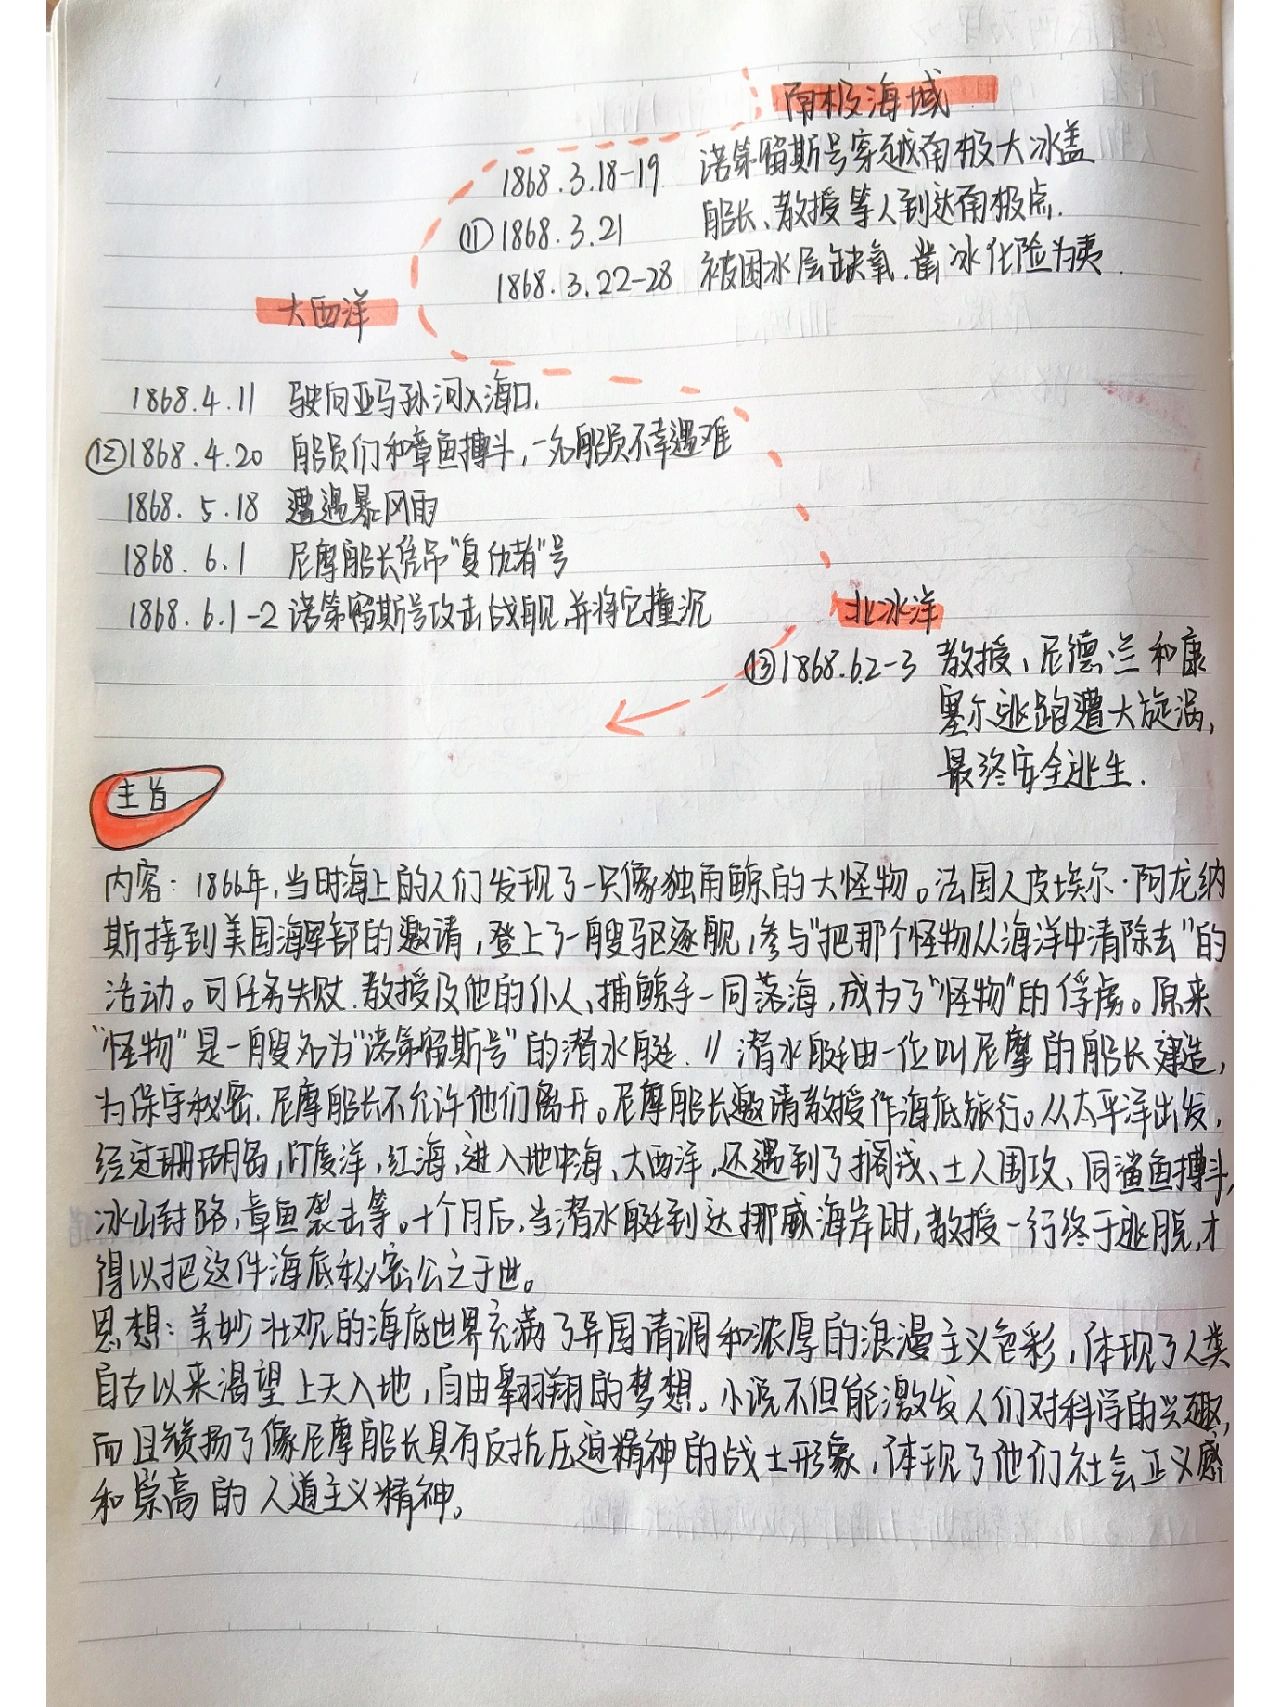 南极海域
1868.3.18-19 诺第留斯号穿越南极大冰盖
⑪1868.3.21 船长、教授等人到达南极点.
1868.3.22-28 被困冰层缺氧.凿冰化险为夷.
大西洋
1868.4.11 驶向亚马孙河入海口.
⑫1868.4.20 船员们和章鱼搏斗,一名船员不幸遇难
1868.5.18 遭遇暴风雨
1868.6.1 尼摩船长凭吊"复仇者"号
1868.6.1-2 诺第留斯号攻击战舰,并将它撞沉
北冰洋
⑬1868.6.2-3 教授、尼德·兰和康
塞尔逃跑遭大旋涡,
最终安全逃生.
主旨
内容:1866年,当时海上的人们发现了一只像独角鲸的大怪物。法国人皮埃尔·阿龙纳
斯接到美国海军部的邀请,登上了一艘驱逐舰,参与"把那个怪物从海洋中清除去"的
活动。可任务失败.教授及他的仆人、捕鲸手一同落海,成为了"怪物"的俘虏。原来
"怪物"是一艘名为"诺第留斯号"的潜水艇.∥潜水艇由一位叫尼摩的船长建造,
为保守秘密,尼摩船长不允许他们离开。尼摩船长邀请教授作海底旅行。从太平洋出发,
经过珊瑚岛,印度洋,红海,进入地中海、大西洋,还遇到了搁浅、土人围攻、同鲨鱼搏斗,
冰山封路,章鱼袭击等。十个月后,当潜水艇到达挪威海岸时,教授一行终于逃脱,才
得以把这件海底秘密公之于世。
思想:美妙壮观的海底世界充满了异国请调和浓厚的浪漫主义色彩,体现了人类
自古以来渴望上天入地,自由翱翔的梦想。小说不但能激发人们对科学的兴趣,
而且赞扬了像尼摩船长具有反抗压迫精神的战士形象,体现了他们社会正义感
和崇高的人道主义精神。